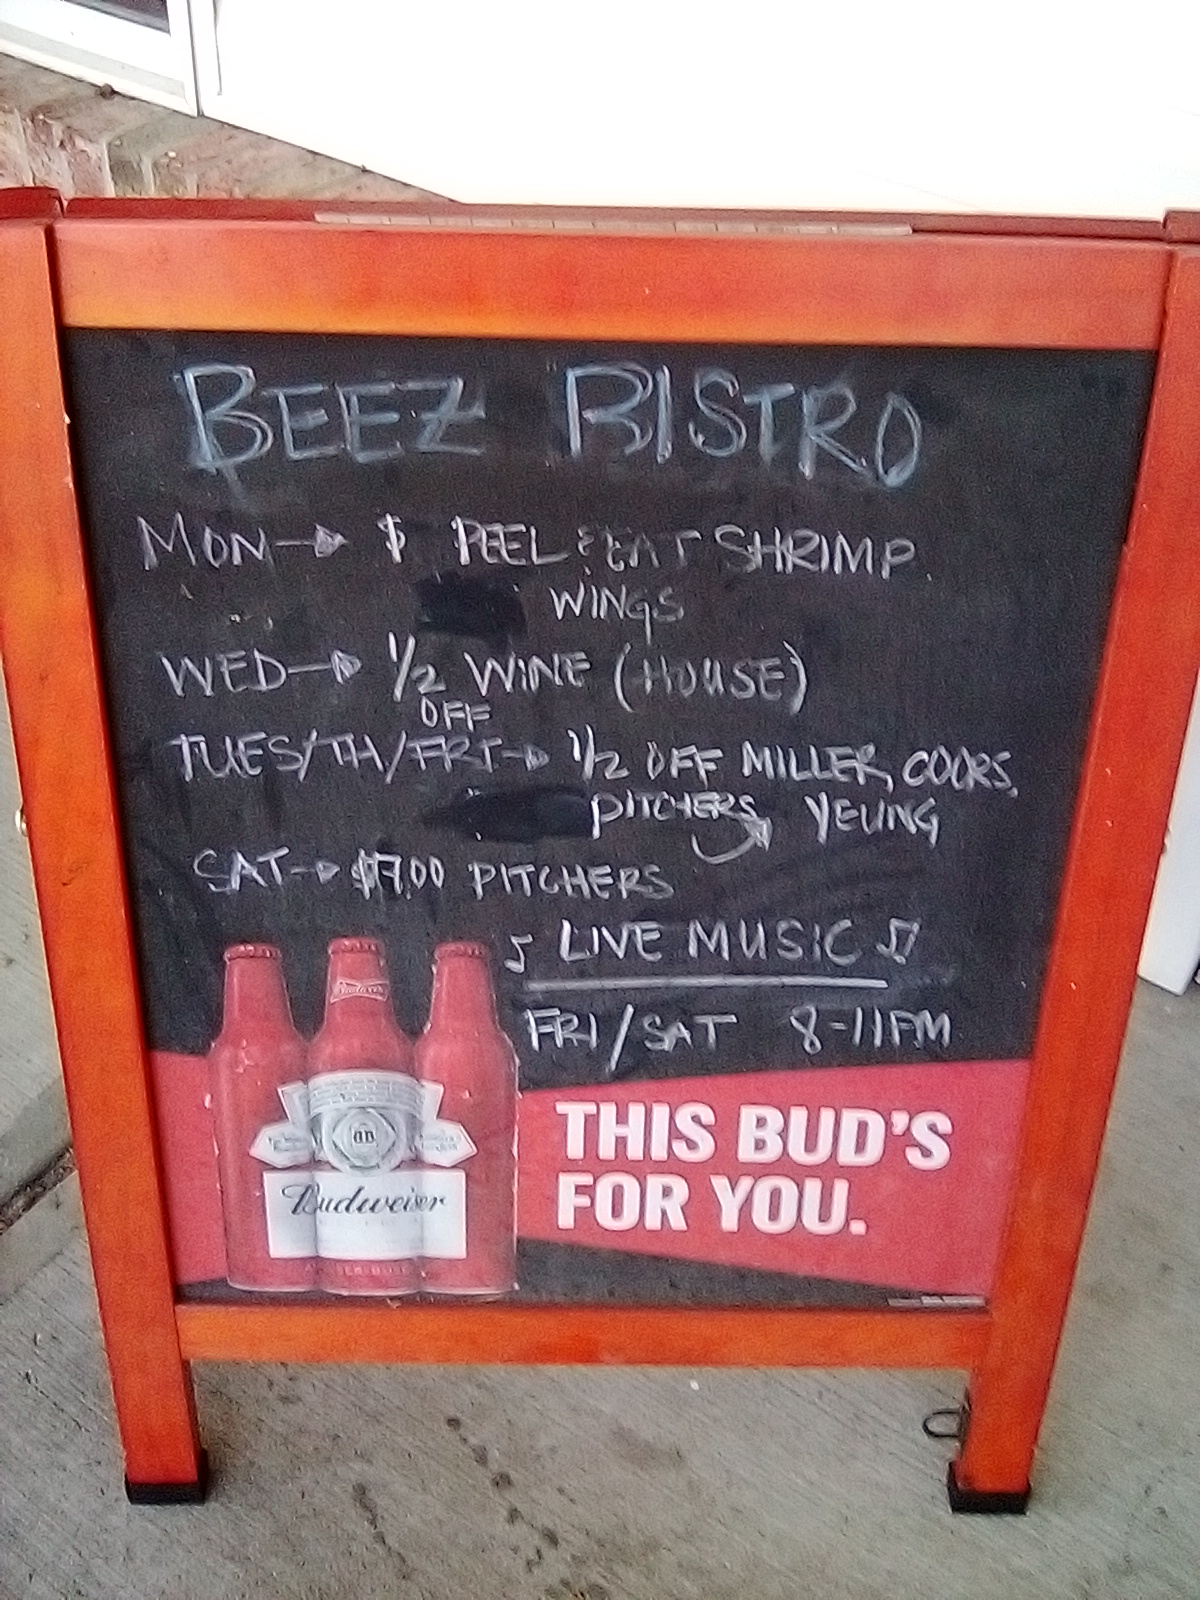 BEEZ BISTRO
MON→ $ PEEL & EAT SHRIMP
WINGS
WED→ 1/2 WINE (HOUSE)
OFF
TUES/TH/FRI→ 1/2 OFF MILLER, COORS,
PITCHERS YEUNG
SAT→ $7.00 PITCHERS
♪ LIVE MUSIC ♫
FRI/SAT 8-11PM
THIS BUD'S
FOR YOU.
Budweiser